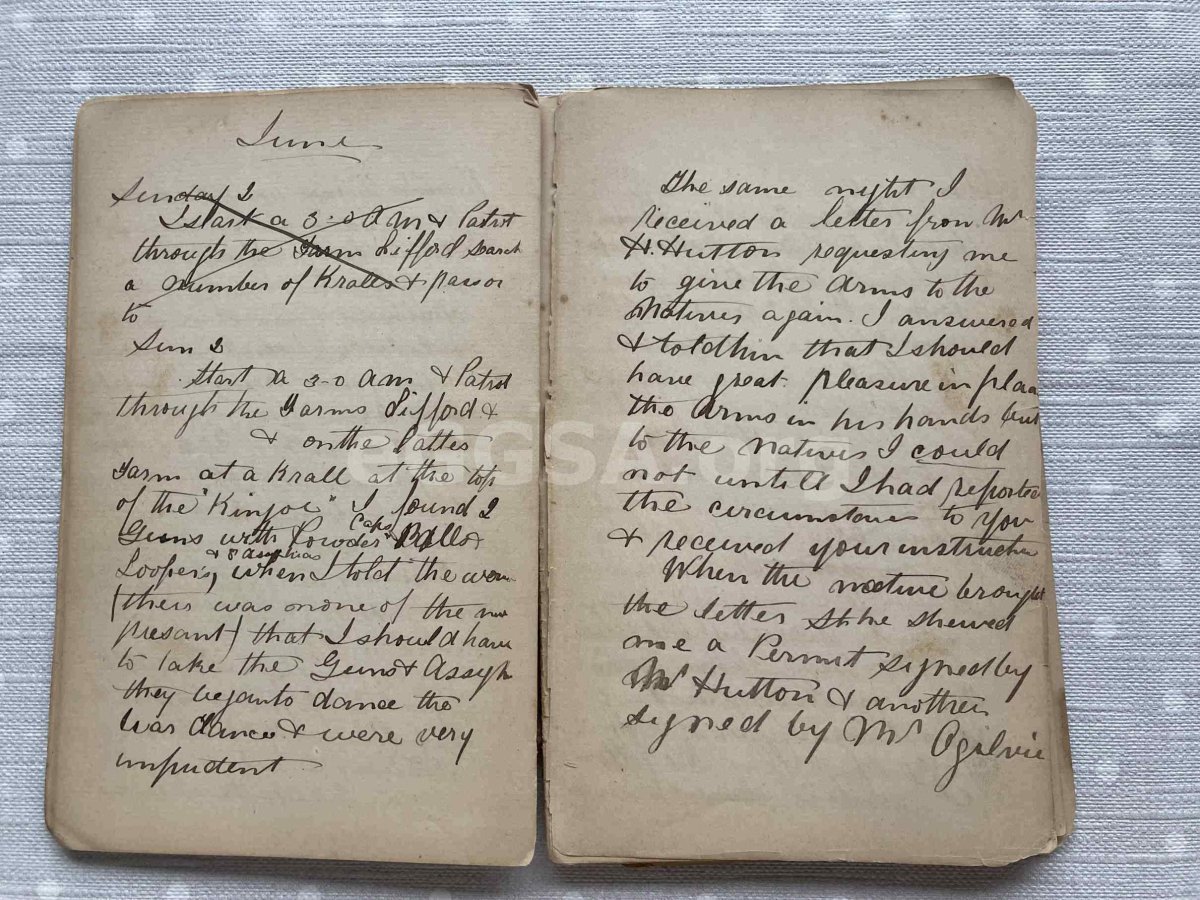 June
Sunday 2
I start a 3-0 am & Patrol
through the Farm Lifford search
a number of Kralls & pass on
to
Sun 2
Start a 3-0 am & Patrol
through the Farms Lifford &
& on the latter
Farm at a Krall at the top
of the "Kinjoe" I found 2
Guns with Powder Caps Balls &
Loopers, & 8 Assyhias when I told the wom
(theis was none of the me
presant) that I should have
to take the Guns & Assyh
they began to dance the
War dance & were very
impudent
The same night I
received a letter from Mr
H. Hutton requesting me
to give the Arms to the
Natives again. I answered
& told him that I should
have great pleasure in placi
the Arms in his hands but
to the Natives I could
not untill I had reported
the circumstances to you
& received your instruction
When the native brought
the letter he shewed
me a Permit signed by
Mr Hutton & another
signed by Mr Ogilvie
eGGSA.org